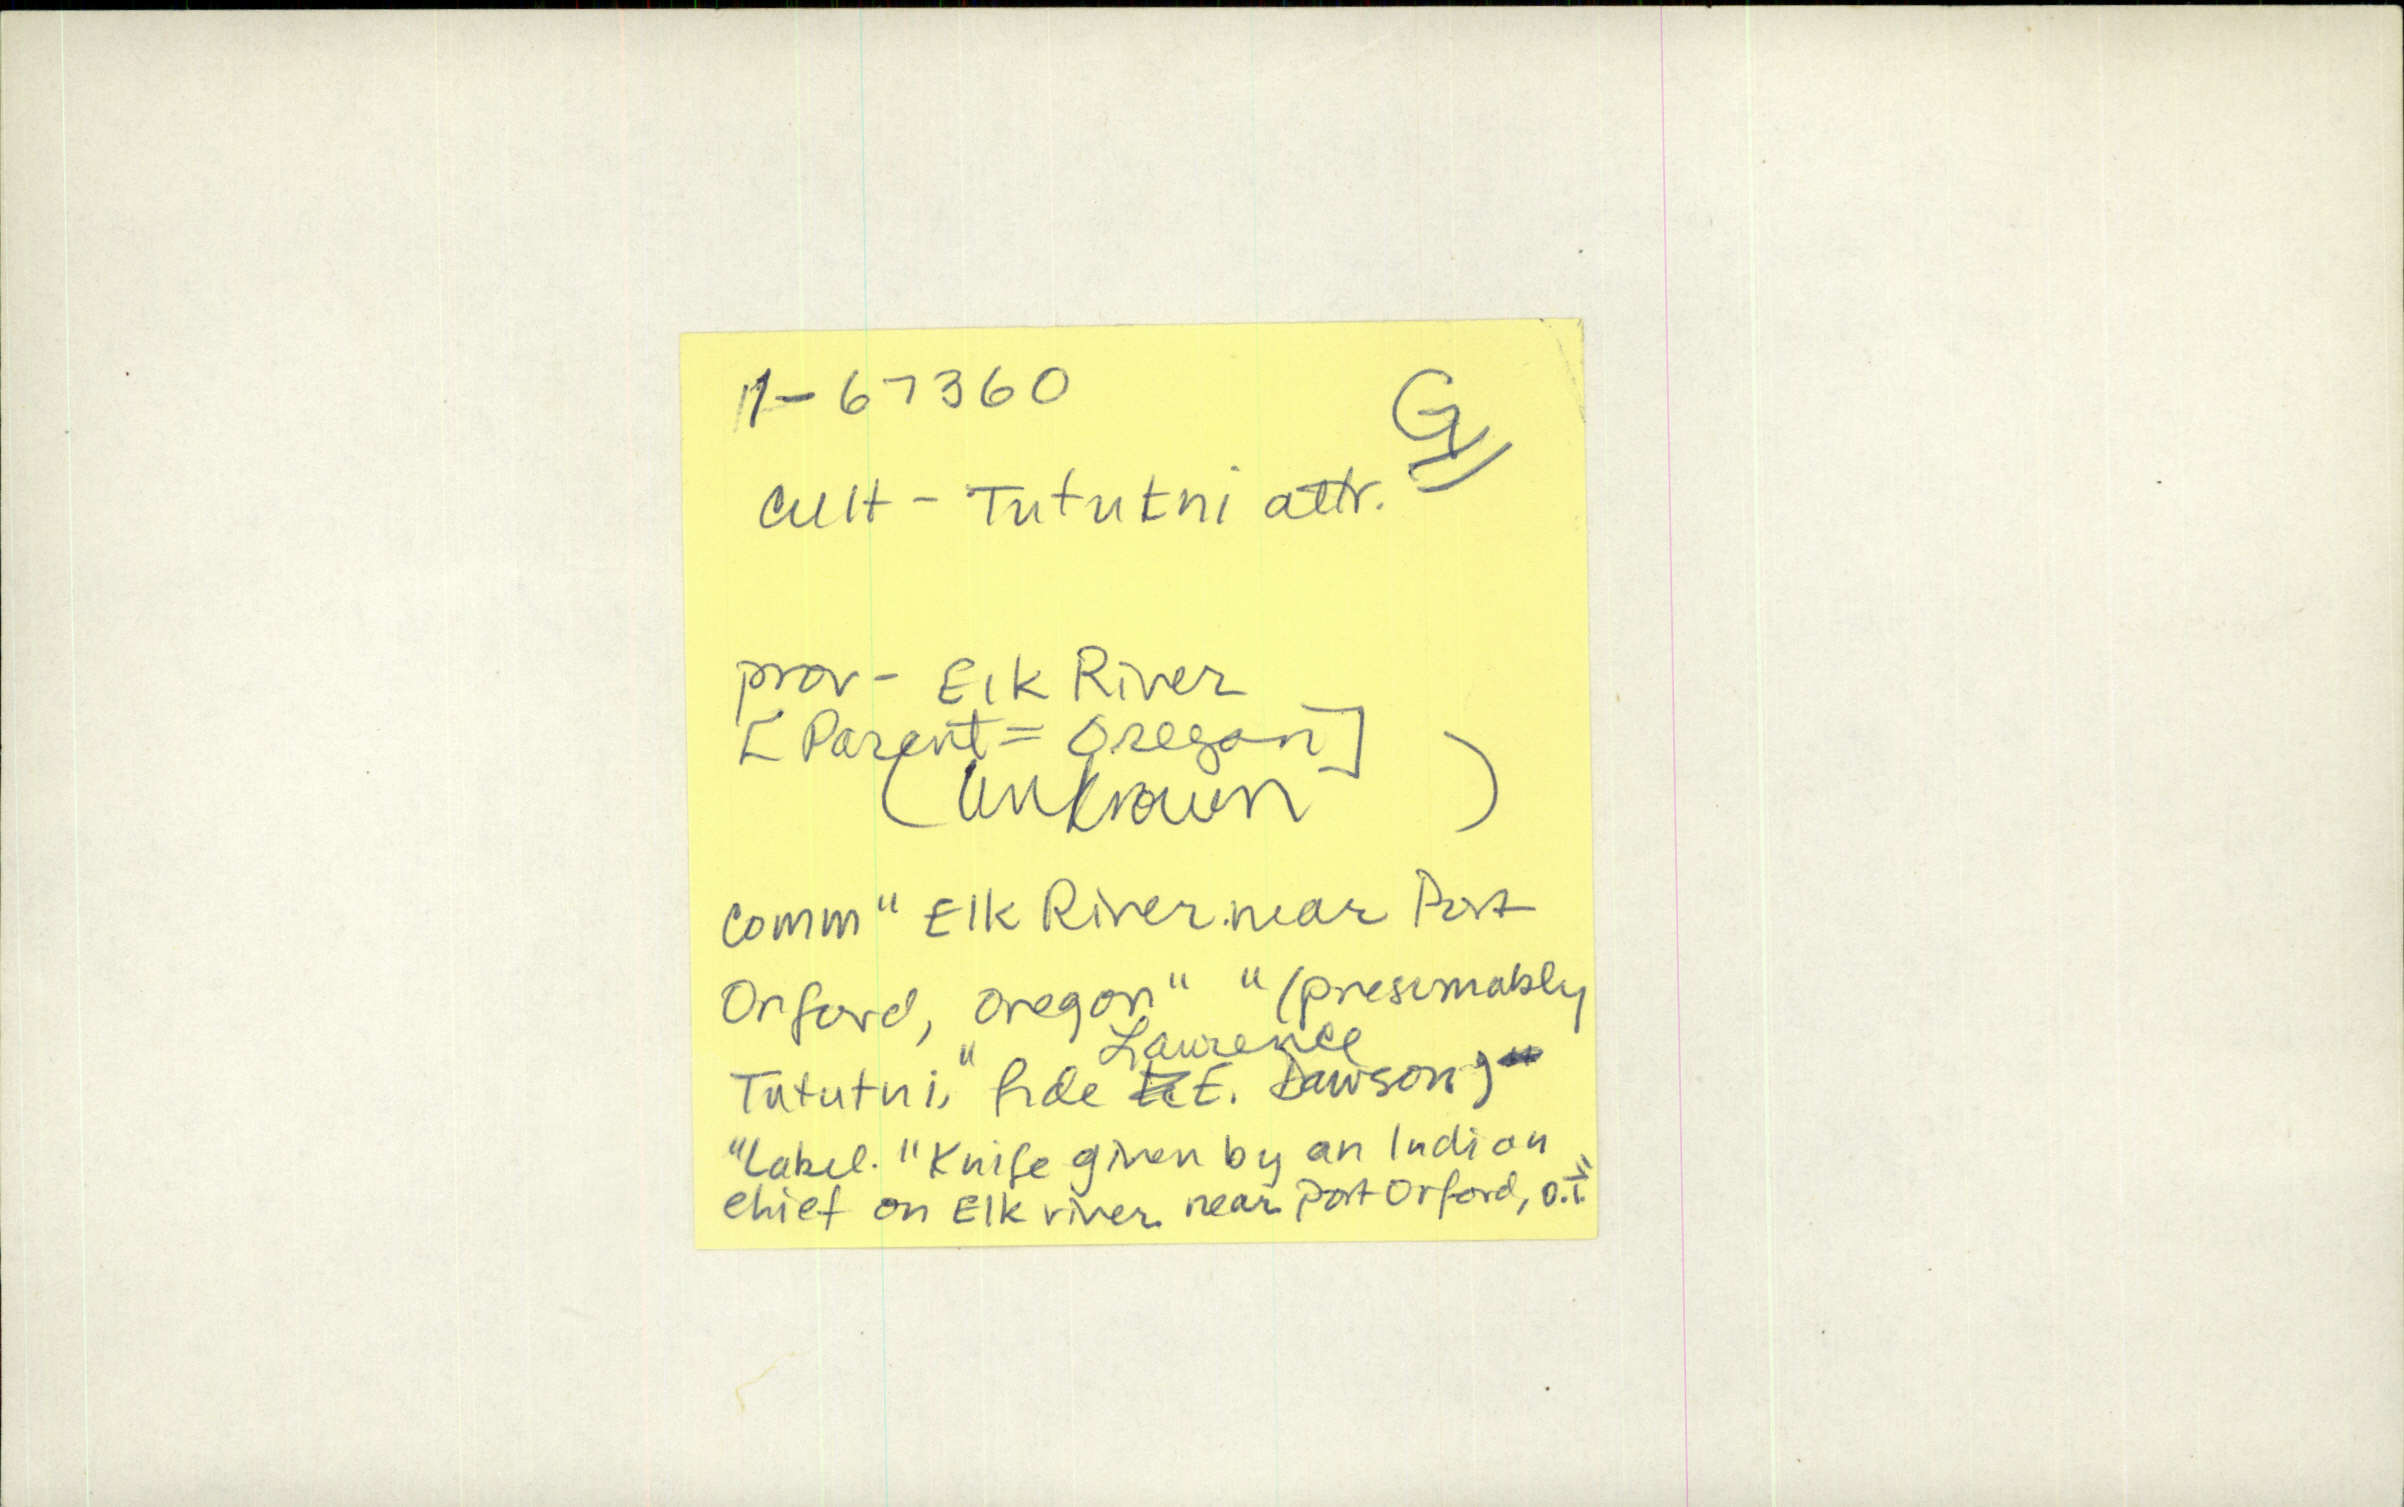 1-67360 G
Cult - Tututni attr.
prov - Elk River
[Parent = Oregon]
(Unknown )
Comm " Elk River near Port
Orford, Oregon" "(presumably
Lawrence
Tututni," fide E. Dawson)"
"Label. "Knife given by an Indian
chief on Elk river near Port Orford, O.T."